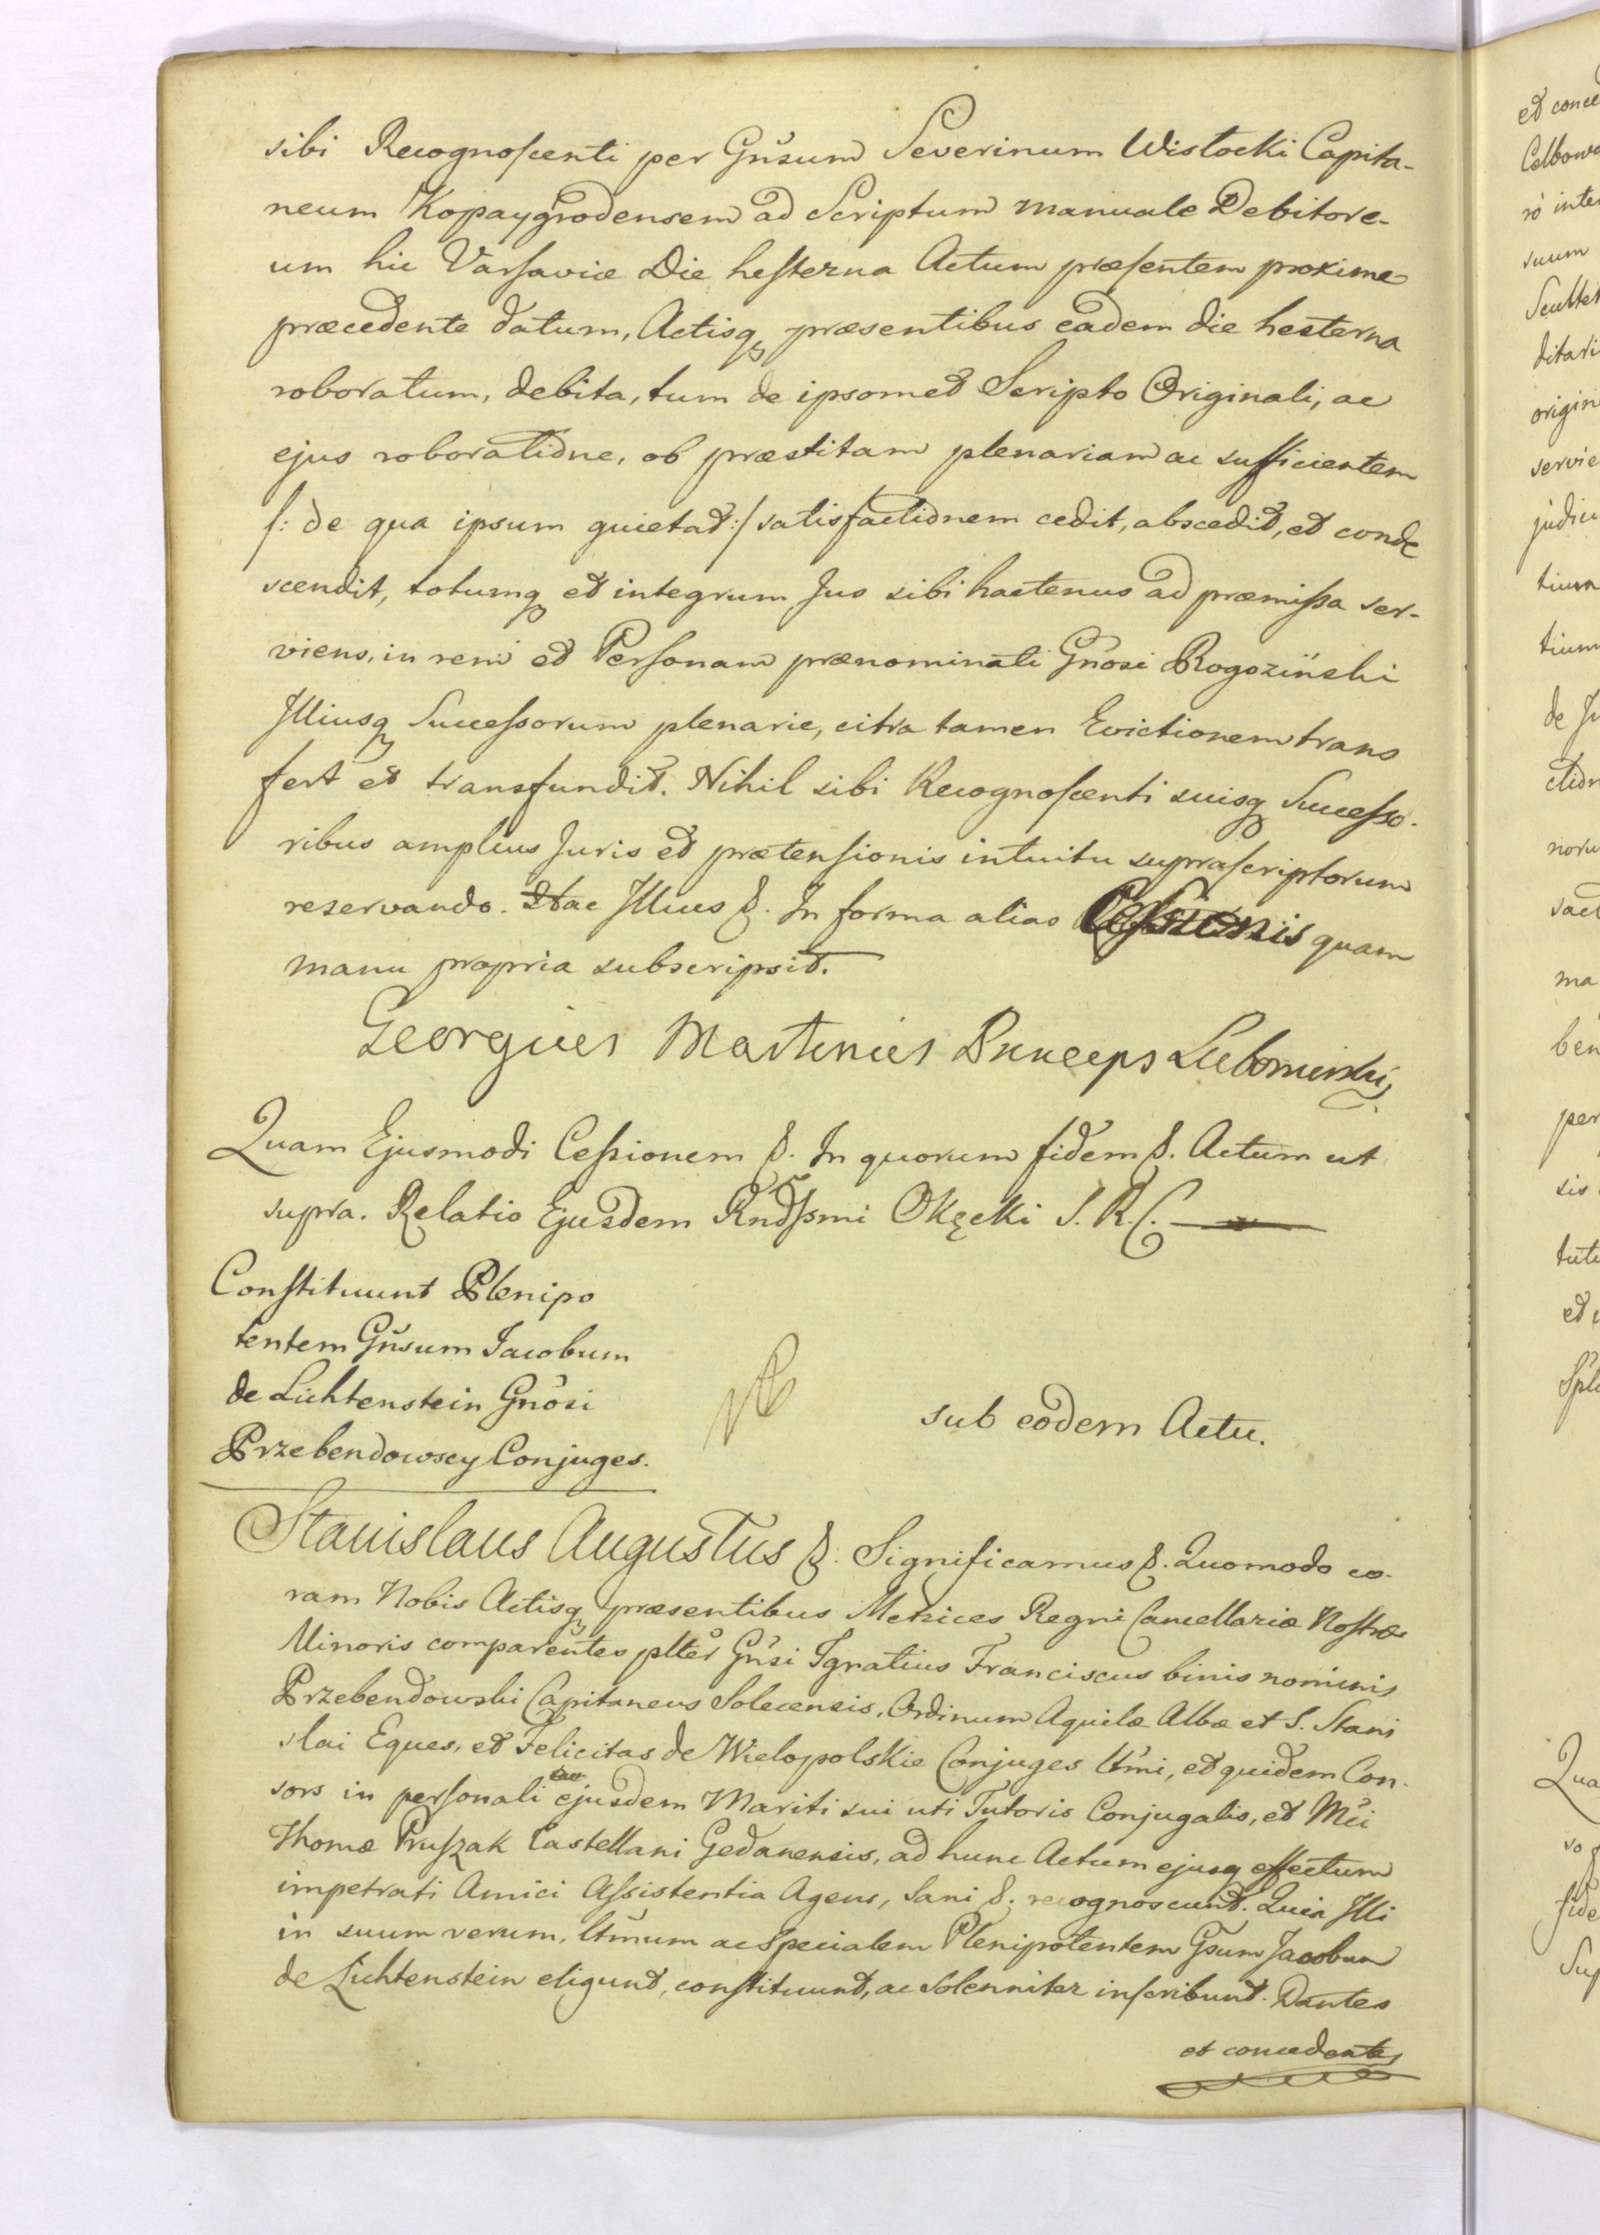 sibi Recognoscenti per Gnsum Severinum Wistocki Capita-
neum Kopaygrodensem ad Scriptum manuale Debitore-
um hic Varsaviæ Die hesterna Actum præsentem proxime
præcedente datum, Actisq præsentibus eadem die hesterna
roboratum, debita, tum de ipsomet Scripto Originali, ac
ejus roboratione, ob præstitam plenariam ac sufficientem
/: de qua ipsum quietat :/ satisfactionem cedit, abscedit, et conde
scendit, totumq et integrum Jus sibi hactenus ad præmissa ser-
viens, in rem et Personam prænominati Gnosi Rogoziński
Illiusq Successorum plenarie, citra tamen Evictionem trans
fert et transfundit. Nihil sibi Recognoscenti suisq Successo-
ribus amplius Juris et prætensionis intuitu suprascriptorum
reservando. Hac Illius &. In forma alias Cessionis quam
manu propria subscripsit.
Georgius Martinus Princeps Lubomirski
Quam Ejusmodi Cessionem &. In quorum fidem &. Actum ut
supra. Relatio Ejusdem Rndssmi Okęcki S. R. C.
Constituunt Plenipo
tentem Gnsum Jacobum
de Lichtenstein Gnosi
Przebendowscy Conjuges.
sub eodem Actu.
Stanislaus Augustus &. Significamus &. Quomodo co-
ram Nobis Actisq præsentibus Metrices Regni Cancellariæ Nostræ
Minoris comparentes plter Gnsi Ignatius Franciscus binis nominis
Przebendowski Capitaneus Solecensis, Ordinum Aquilæ Albæ et S. Stani
slai Eques, et Felicitas de Wielopolskie Conjuges ltmi, et quidem Con-
sors in personali ejusdem Mariti sui uti Tutoris Conjugalis, et Mci
Thomæ Pruszak Castellani Gedanensis, ad hunc Actum ejusq effectum
impetrati Amici Assistentia Agens, Sani &. recognoscunt. Quia Illi
in suum verum, ltmum ac specialem Plenipotentem Gsum Jacobum
de Lichtenstein eligunt, constituunt, ac solenniter inscribunt. Dantes
et concedentes